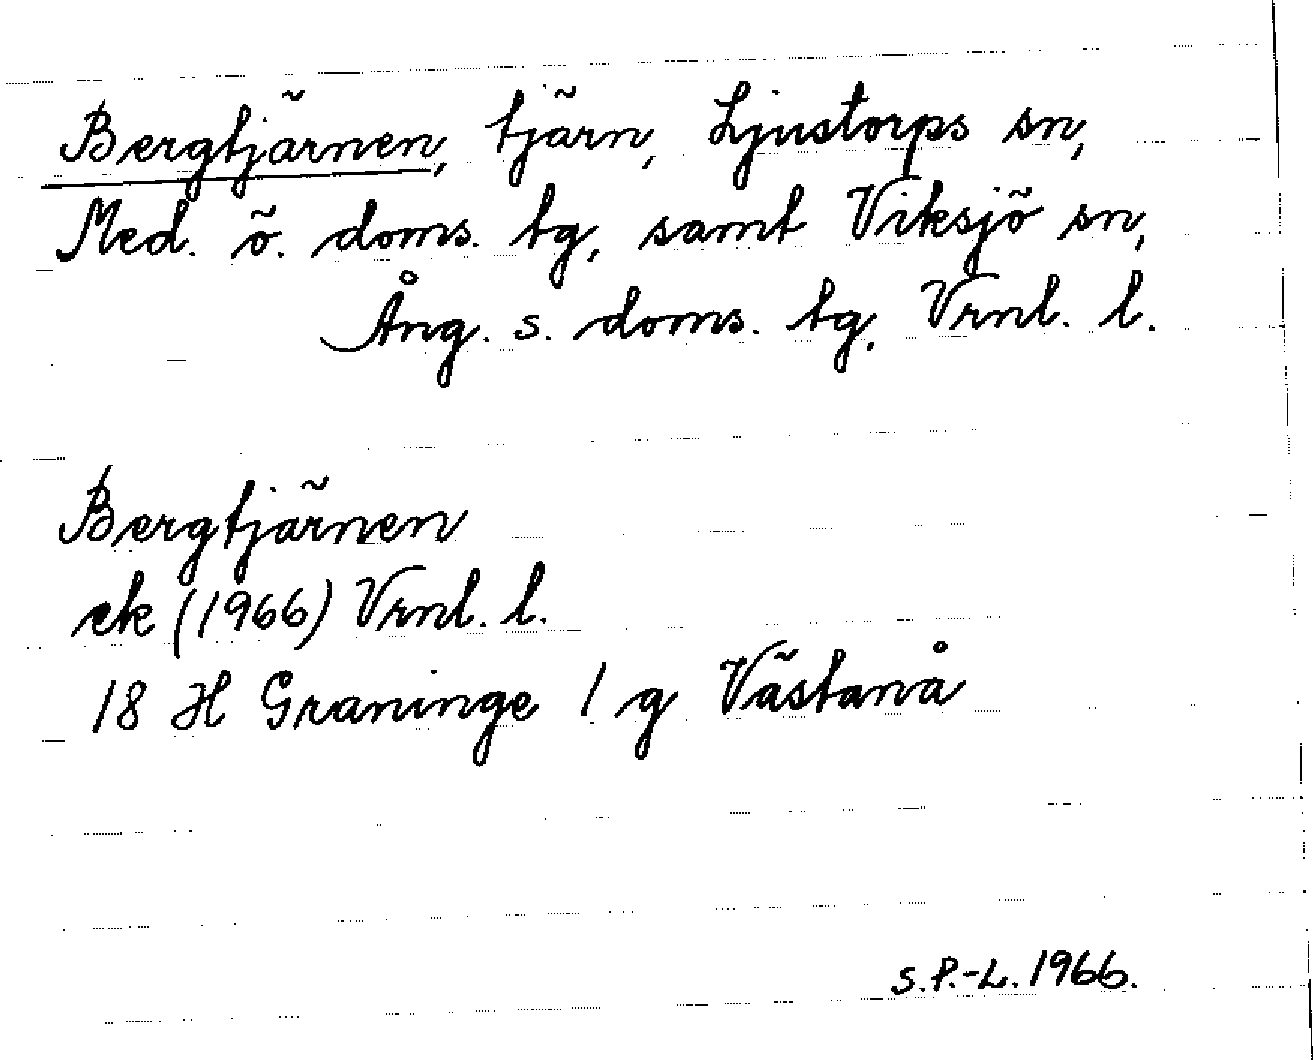 Bergtjärnen, tjärn, Ljustorps sn,
Med. ö. doms. tg, samt Viksjö sn,
Ång. s. doms. tg. Vrnl. l.
Bergtjärnen
ek (1966) Vrnl. l.
18 H Graninge 1 g Västanå
S.P.-L. 1966.